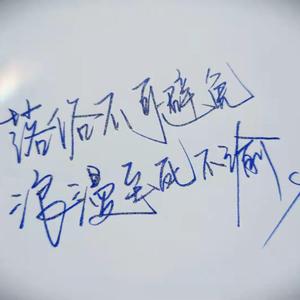 落俗不可避免
浪漫至死不渝